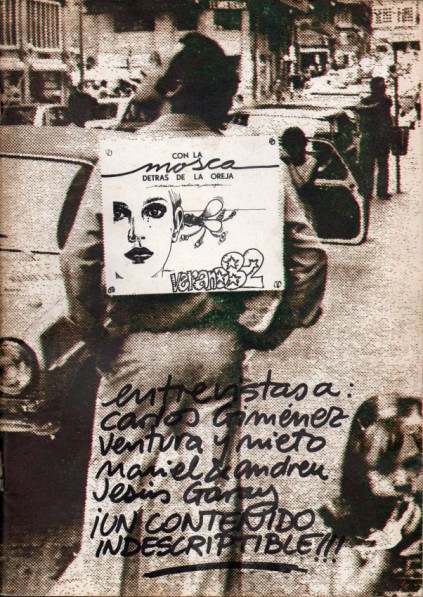 CON LA
mosca
DETRAS DE LA OREJA
verano 82
entrevistas a:
Carlos Giménez
Ventura y Nieto
Maniel & Andreu
Jesús Garay
¡UN CONTENIDO
INDESCRIPTIBLE!!!